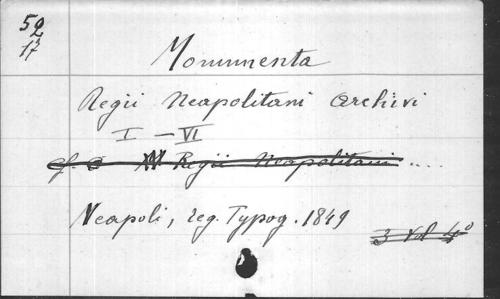 52
17
Monumenta
Regii Neapolitani Archivi
I - VI
Regii Neapolitani ....
Neapoli, reg. Typog. 1849
3 Vol 4°